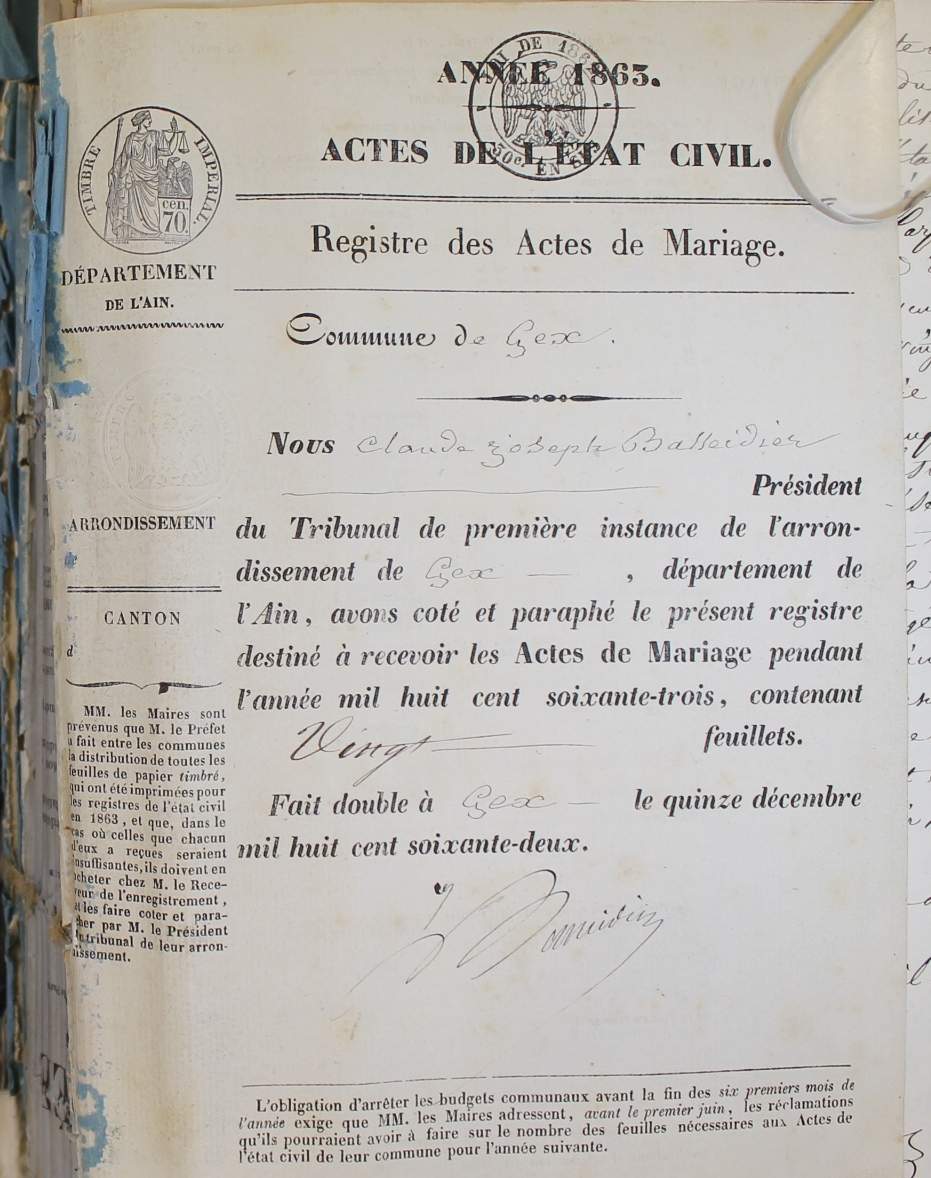 ANNÉE 1863.
ACTES DE L'ÉTAT CIVIL.
Registre des Actes de Mariage.
TIMBRE IMPÉRIAL.
cen.
70.
DÉPARTEMENT
DE L'AIN.
Commune de Gex.
Nous Claude Joseph
Président
ARRONDISSEMENT
du Tribunal de première instance de l'arron-
dissement de Gex — , département de
CANTON
l'Ain, avons coté et paraphé le présent registre
d'
destiné à recevoir les Actes de Mariage pendant
l'année mil huit cent soixante-trois, contenant
Vingt feuillets.
Fait double à Gex — le quinze décembre
mil huit cent soixante-deux.
MM. les Maires sont
prévenus que M. le Préfet
a fait entre les communes
la distribution de toutes les
feuilles de papier timbré,
qui ont été imprimées pour
les registres de l'état civil
en 1863, et que, dans le
cas où celles que chacun
d'eux a reçues seraient
insuffisantes, ils doivent en
acheter chez M. le Rece-
veur de l'enregistrement,
et les faire coter et para-
pher par M. le Président
du tribunal de leur arron-
dissement.
L'obligation d'arrêter les budgets communaux avant la fin des six premiers mois de
l'année exige que MM. les Maires adressent, avant le premier juin, les réclamations
qu'ils pourraient avoir à faire sur le nombre des feuilles nécessaires aux Actes de
l'état civil de leur commune pour l'année suivante.